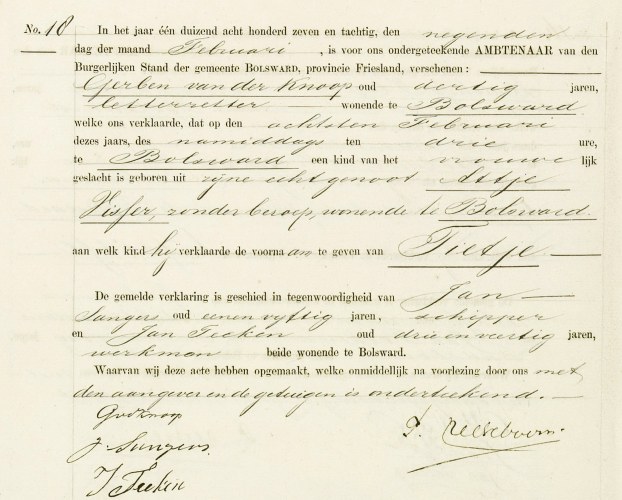 No. 18 In het jaar één duizend acht honderd zeven en tachtig, den negenden
dag der maand Februari, is voor ons ondergeteekende AMBTENAAR van den
Burgerlijken Stand der gemeente BOLSWARD, provincie Friesland, verschenen:
Gjerben van der Knoop oud dertig jaren,
letterzetter wonende te Bolsward
welke ons verklaarde, dat op den achtsten Februari
dezes jaars, des namiddags ten drie ure,
te Bolsward een kind van het vrouwelijk
geslacht is geboren uit zijne echtgenoot Attje
Visser, zonder beroep, wonende te Bolsward.
aan welk kind hij verklaarde de voornaam te geven van Tietje
De gemelde verklaring is geschied in tegenwoordigheid van Jan
Sangers oud eenen vijftig jaren, schipper
en Jan Teeken oud drie en veertig jaren,
werkman beide wonende te Bolsward.
Waarvan wij deze acte hebben opgemaakt, welke onmiddelijk na voorlezing door ons met
den aangever en de getuigen is onderteekend.
GvdKnoop
J. Sangers.
J Teeken